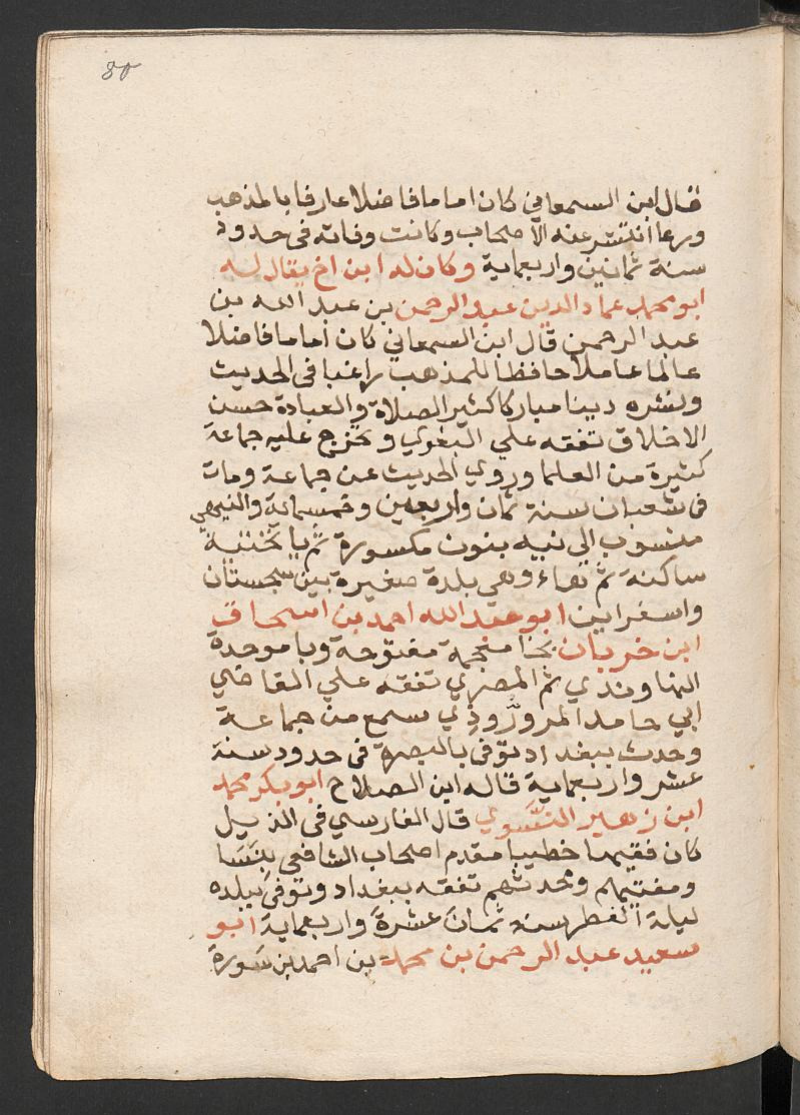 85
قال ابن السمعاني كان اماما فاضلا عارفا بالمذهب
ورعا انتشر عنه الاصحاب وكانت وفاته فى حدود
سنة ثمانين واربعماية وكان له ابن اخ يقال له
ابو محمد عماد الدين عبد الرحمن بن عبد الله بن
عبد الرحمن قال ابن السمعاني كان اماما فاضلا
عالما عاملا حافظا للمذهب راغبا فى الحديث
ونشره دينا مباركا كثير الصلاة والعبادة حسن
الاخلاق تفقه علي البغوي وتخرج عليه جماعة
كثيرة من العلما وروي الحديث عن جماعة ومات
فى شعبان سنة ثمان واربعين وخمسماية والنيهي
منسوب الي نيه بنون مكسورة ثم يا تحتية
ساكنة ثم هاء وهي بلدة صغيرة بين سجستان
واسفراين ابو عبد الله احمد بن اسحاق
ابن خربان بخا معجمة مفتوحة وبا موحدة
النهاوندي ثم المصري تفقه علي القاضي
ابي حامد المروروذي سمع من جماعة
وحدث ببغداد توفى بالبصرة فى حدود سنة
عشر واربعماية قاله ابن الصلاح ابو بكر محمد
ابن زهير النسوي قال الفارسي فى الذيل
كان فقيها خطيبا مقدم اصحاب الشافعي بنسا
ومفتيهم ومحدثهم تفقه ببغداد وتوفى ببلده
ليلة الفطر سنة ثمان عشرة واربعماية ابو
سعيد عبد الرحمن بن محمد بن احمد بن سورة